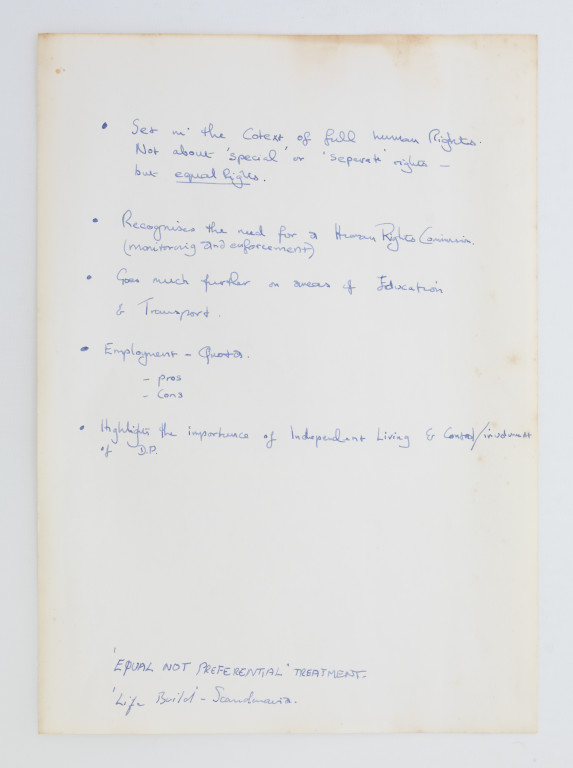 • Set in the Cotext of full human Rights.
Not about 'special' or 'separate' rights –
but equal rights.
• Recognises the need for a Human Rights Commission.
(monitoring and enforcement)
• Goes much further on areas of Education
& Transport.
• Employment – Quotas.
– pros
– Cons
• Highlights the importance of Independent Living & Control/involvement
of D.P.
'EQUAL NOT PREFERENTIAL' TREATMENT.
'Life Build' – Scandinavia.